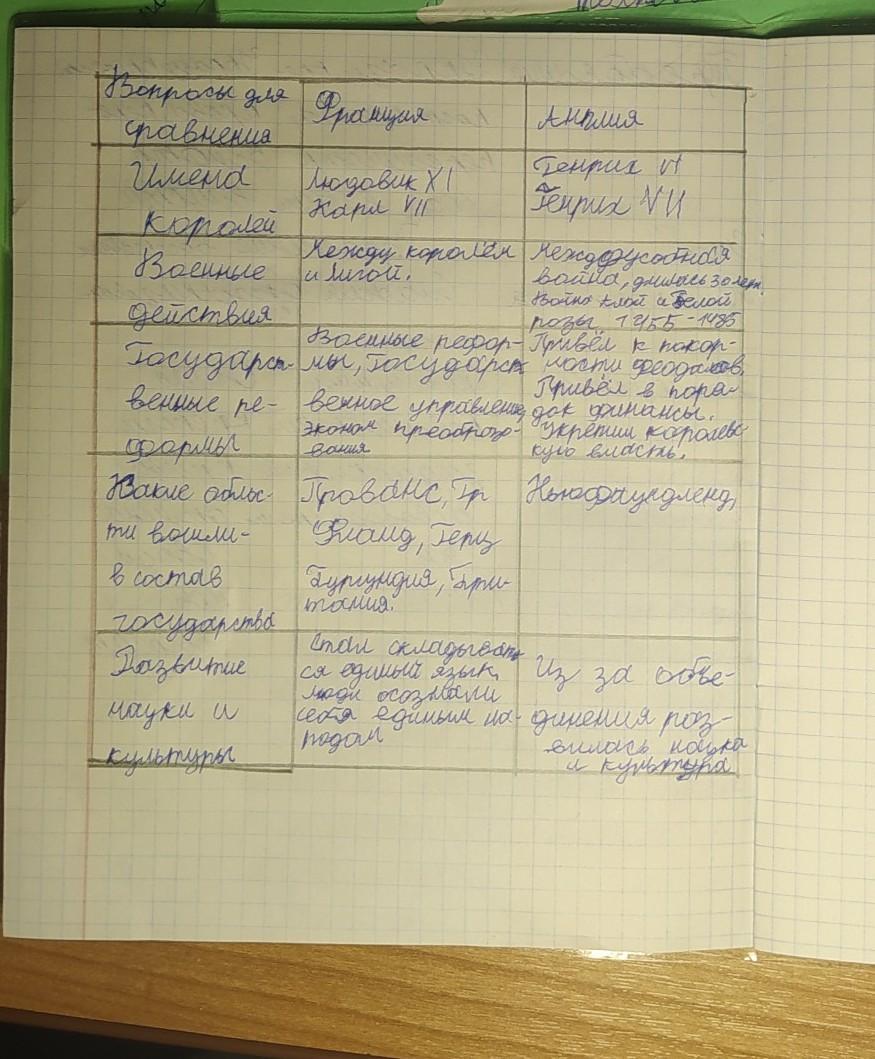 Вопросы для
сравнения
Франция
Англия
Имена
королей
Людовик XI
Карл VII
Генрих VI
Генрих VII
Военные
действия
Между королём
и Лигой.
Междоусобная
война, длилась 30 лет.
Война Алой и Белой
розы 1455-1485
Государст-
венные ре-
формы
Военные рефор-
мы, Государст
венное управление,
эконом преоброзо-
вания
Привёл к покор-
ности феодалов.
Привёл в поря-
док финансы.
Укрепил королевс-
кую власть.
Какие облас-
ти вошли-
в состав
государства
Прованс, Гр
Фланд, Герц
Бургундия, Бри-
тания.
Ньюфаундленд,
Развитие
науки и
культуры
Стал складыват
ся единый язык,
люди осознали
себя единым на-
родом
Из за объе-
динения раз-
вилась наука
и культура